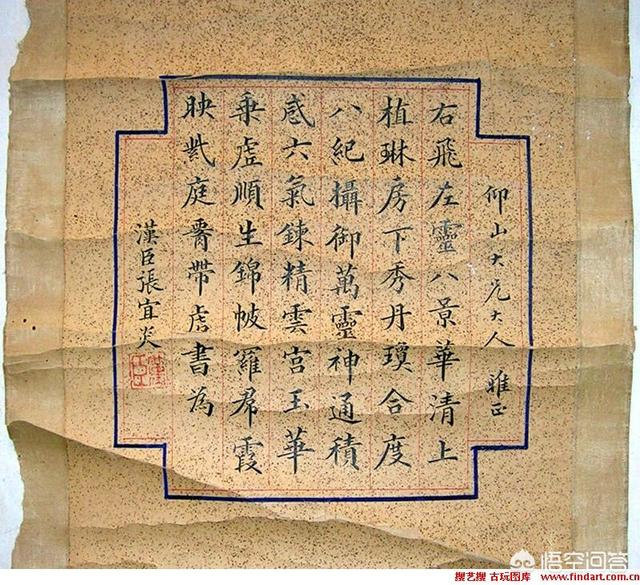 仰山大兄大人 雅正
右飛左靈八景華清上
植琳房下秀丹瓊合度
八紀攝御萬靈神通積
感六氣鍊精雲宮玉華
乗虛順生錦帔羅帬霞
映紫庭帶虎書為
漢臣張宜炎
漢臣
悟空问答
搜艺搜 古玩图库 www.findart.com.cn